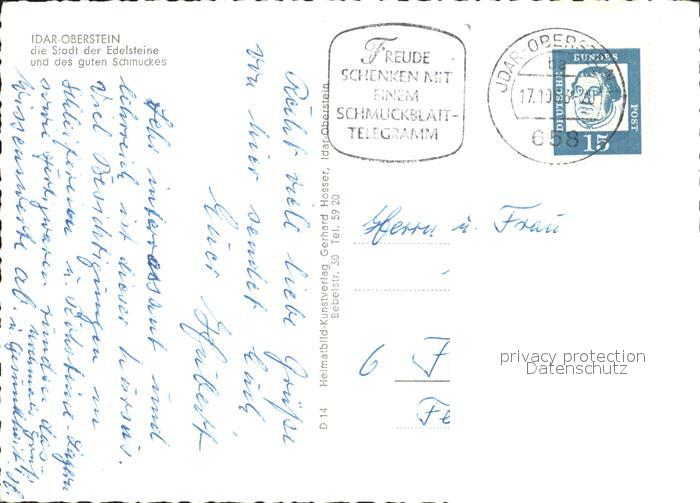 IDAR-OBERSTEIN
die Stadt der Edelsteine
und des guten Schmuckes
FREUDE
SCHENKEN MIT
EINEM
SCHMUCKBLATT-
TELEGRAMM
IDAR-OBERSTEIN
17.10.
658
DEUTSCHE BUNDESPOST
15
Recht viele liebe Grüße
von hier sendet Euch
Euer Hubert
Sehr interessant und
lehrreich ist dieser Kursus.
Viel Besichtigungen in
Schleifereien u. Edelsteine-Lagern
sowie Fertigwaren runden das
Wissenswerte ab.
D 14 Heimatbild-Kunstverlag Gerhard Hosser, Idar-Oberstein
Bebelstr. 30 Tel. 59 20
Herrn u. Frau
6 F
Fe
privacy protection
Datenschutz